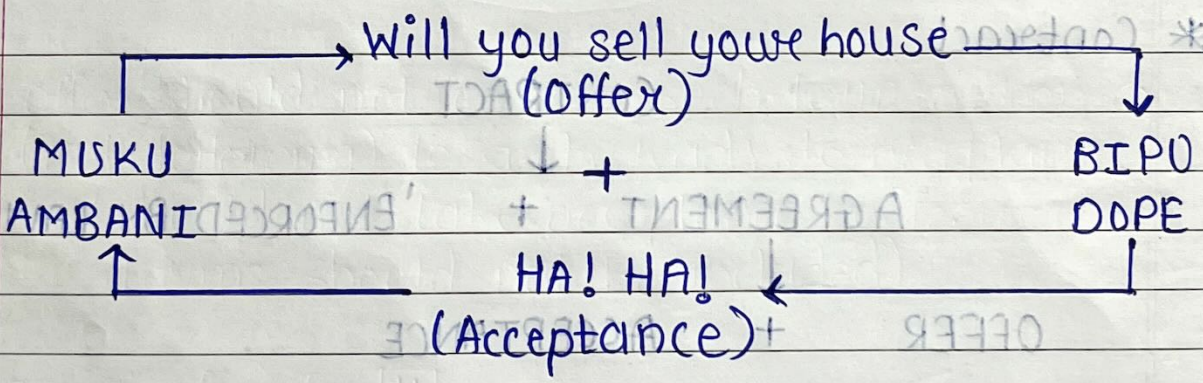 Will you sell your house
(Offer)
MUKU
AMBANI
+
BIPU
DOPE
HA! HA!
(Acceptance)